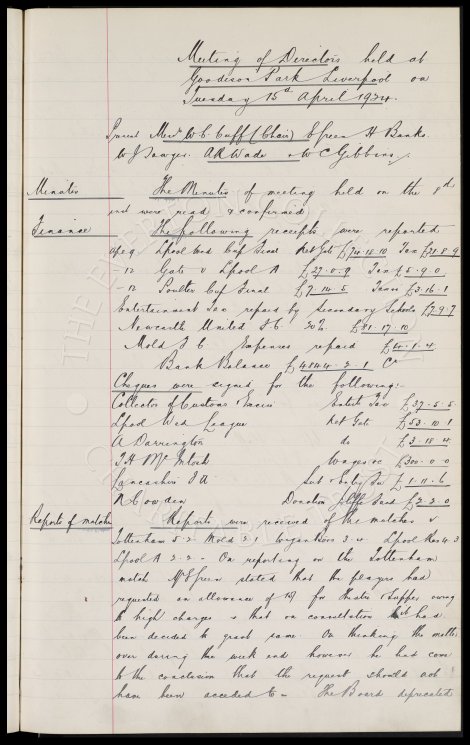 Meeting of Directors held at
Goodison Park Liverpool on
Tuesday 15th April 1924.
Present Messrs W. C. Cuff (Chair) E Green H Banks
W J Sawyer. A R Wade & W C Gibbins.
Minutes The Minutes of meeting held on the 8th
inst were read & confirmed
Finance The following receipts were reported
Apl 9 Lpool Cup Final Net Gate £74.18.10 Tax £28.8.9
- 12 Gate v Lpool A £27.0.9 Tax £5.9.0
- 12 Final £7.14.5 Tax £3.16.1
Entertainment Tax repaid by Secondary Schools £7.9.7
Newcastle United F C 20% £81.17.10
Mold F C Expenses repaid £4.1.4
Bank Balance £4844.2.1 Cr
Cheques were signed for the following:-
Collector of Customs & Excise Entertt Tax £37.5.5
Lpool Wed League Net Gate £53.10.1
A Darrington do £3.18.4
T H McIntosh Wages &c £300.0.0
Lancashire F A £1.11.6
N Cowden Donation Fund £2.2.0
Reports of matches Reports were received of the matches v
Tottenham 5.2 Mold 2.1 3.0 Lpool Res 4.3
Lpool A 2.2 - On reporting on the Tottenham
match Mr Green stated that the players had
requested an allowance of for supper owing
to high charges & that on consultation it had
been decided to grant same. On thinking the matter
over during the week end however he had come
to the conclusion that the request should not
have been acceded to - The Board deprecated
THE EVERTON